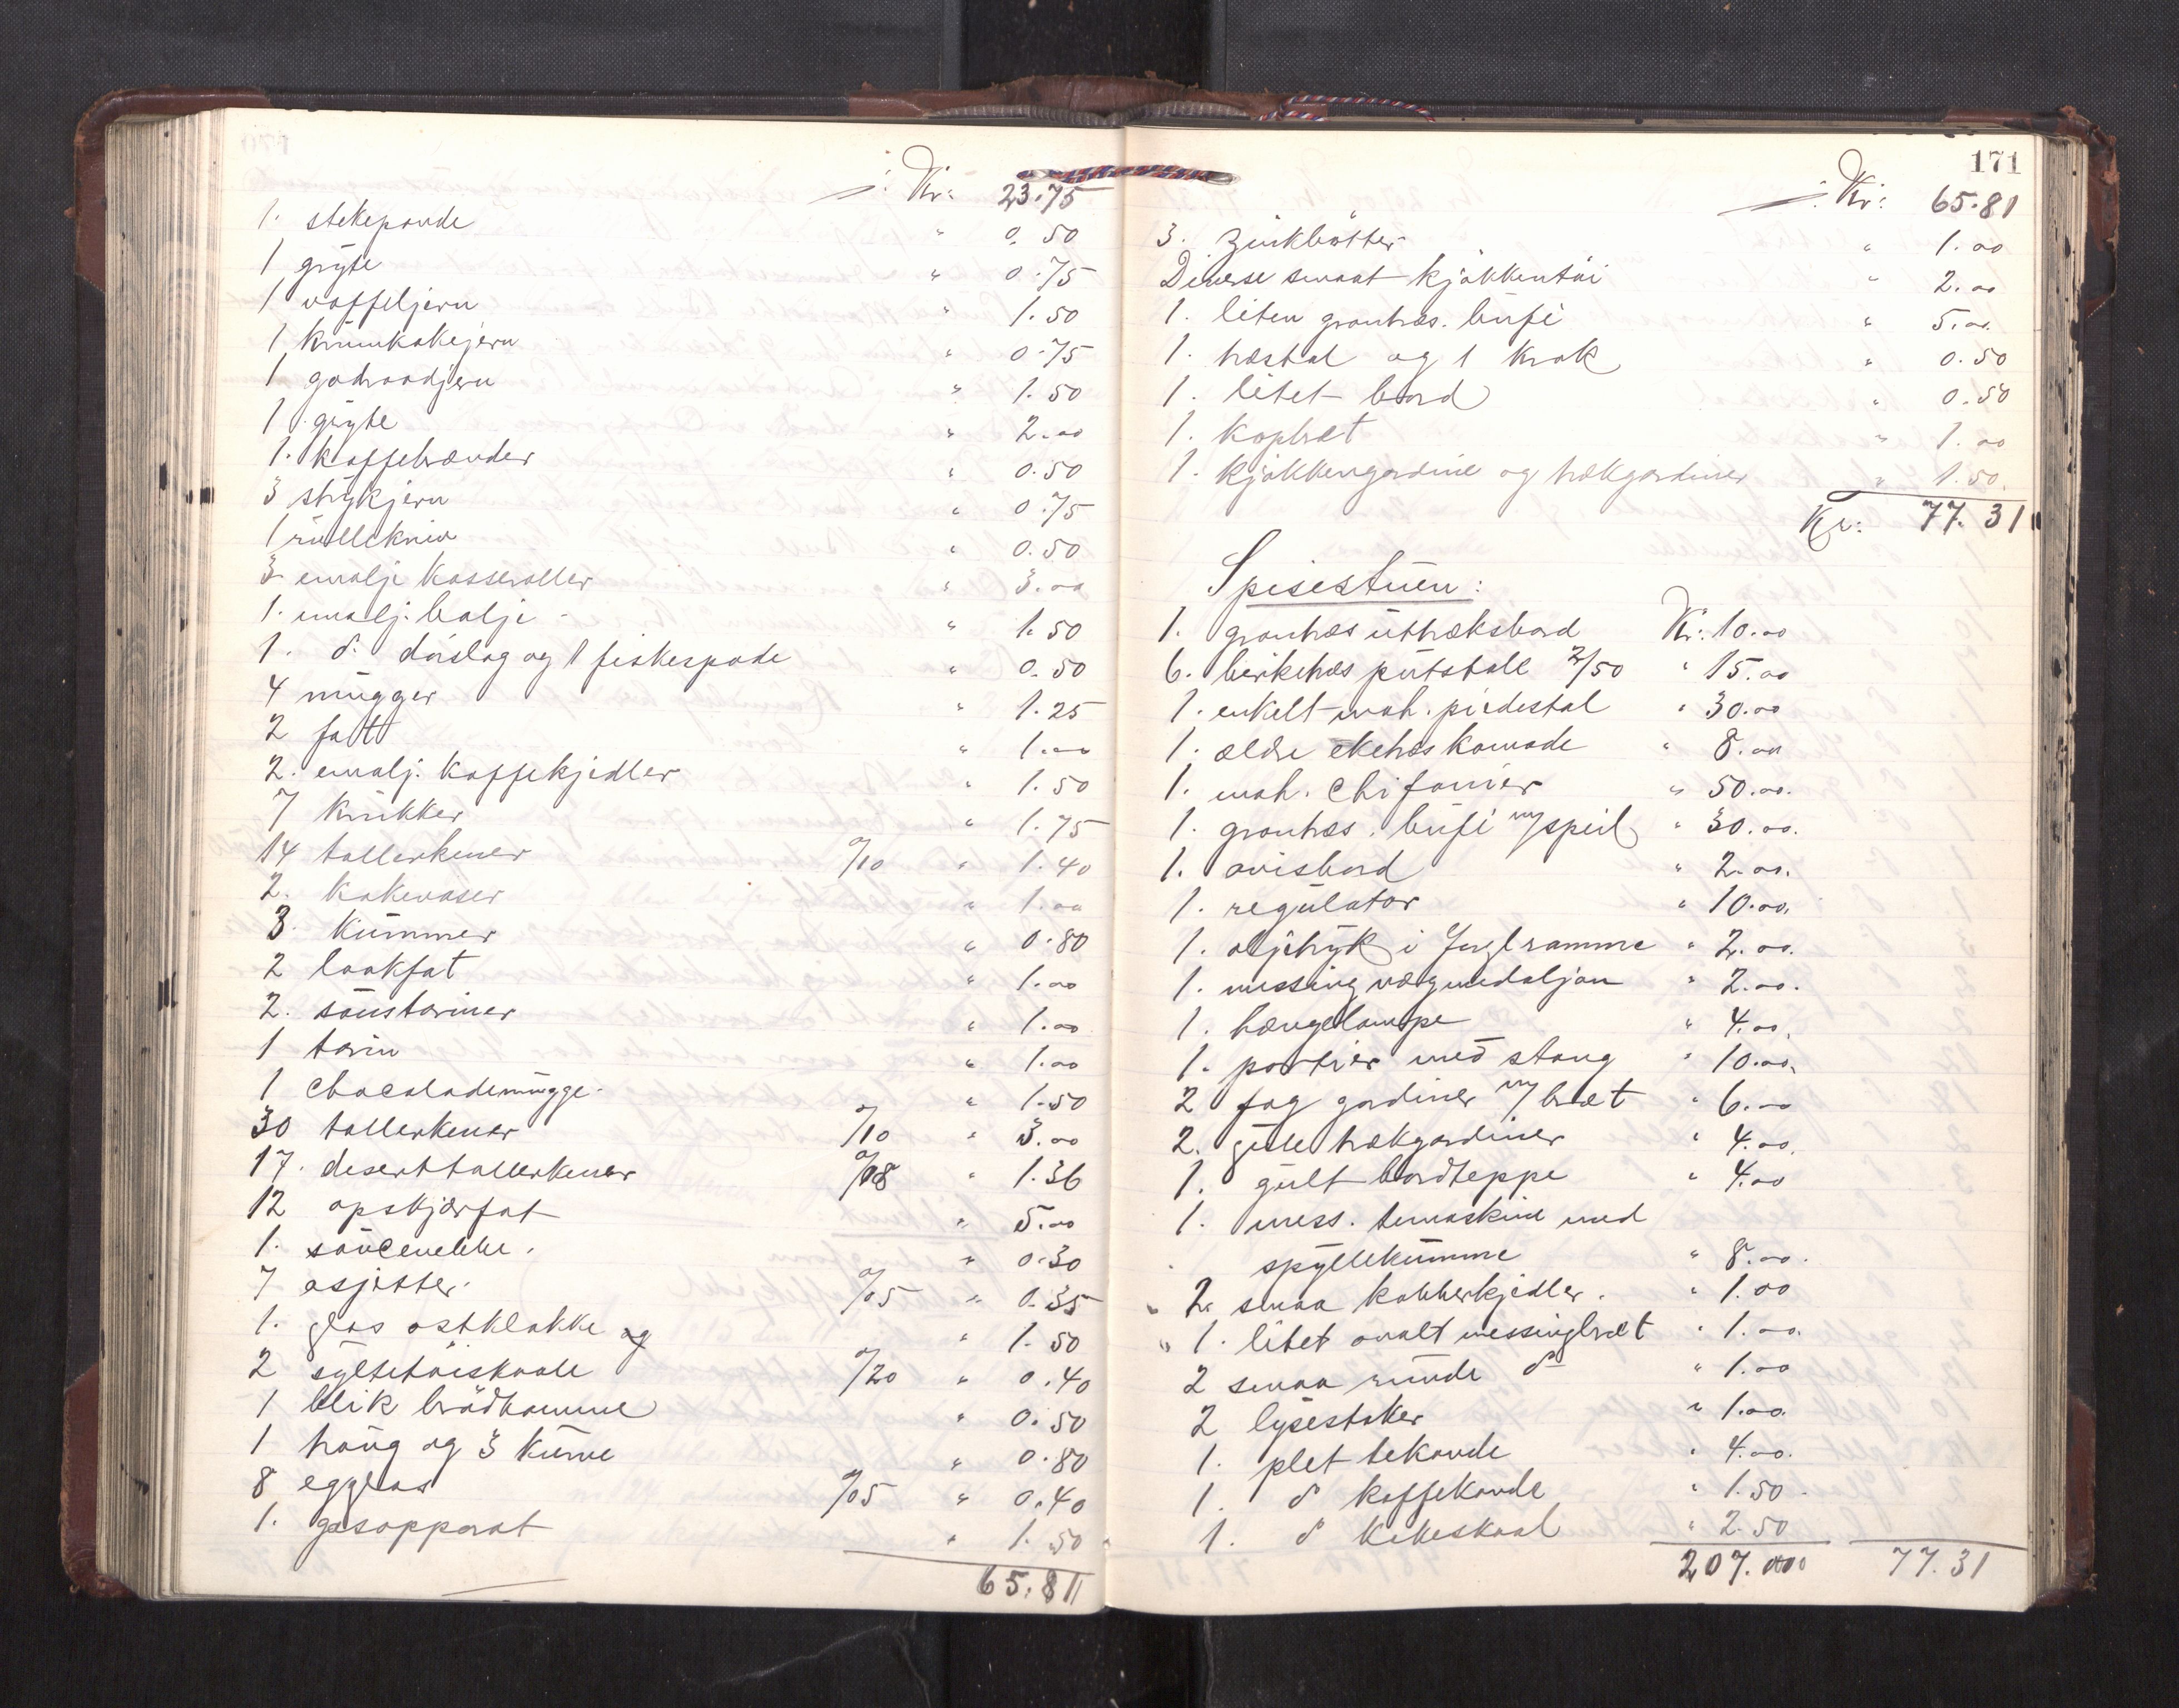 ./. Kr: 23.75
1. stekepande " 0.50
1 gryte " 0.75
1 vaffeljern " 1.50
1 krumkakejern " 0.75
1 godraadjern " 1.50
1 gryte " 2.00
1. kaffebrænder " 0.50
3 strykjern " 0.75
1 rullekniv " 0.50
3 emalje kasseroller " 3.00
1. emalj. balje " 1.50
1. do dørslag og 1 fiskespade " 0.50
4 mugger " 1.25
2 fat " 1.00
2. emalj. kaffekjedler " 1.50
7 krukker " 1.75
14 tallerkener a/10 " 1.40
2. kakevaser " 1.00
3. kummer " 0.80
2 laakfat " 1.00
2. saustariner " 1.00
1 tarin " 1.00
1 chocolademugge " 1.50
30 tallerkener a/10 " 3.00
17. deserttallerkener a/08 " 1.36
12 opskjærfat " 5.00
1. sauce " 0.30
7 asjetter. a/05 " 0.35
1. glas ostklokke og " 1.50
2 syltetøiskaale a/20 " 0.40
1 blik brødkomme " 0.50
1 traug og 3 kurve " 0.80
8 egglas a/05 " 0.40
1. gasapparat " 1.50
65.81
171
./. Kr: 65.81
3. zinkbøtter " 1.00
Diverse smaat kjøkkentøi " 2.00
1. liten grantræs. bufé " 5.00
1. træstol og 1 krak " 0.50
1. litet bord " 0.50
1. kopbræt " 1.00
1. kjøkkengardine og trækgardiner " 1.50.
Kr: 77.31
Spisestuen:
1. grantræs uttræksbord Kr: 10.00
6. birketræs putstole 2/50 " 15.00
1. enkelt mah. piedestal " 30.00
1. ældre eketræs komode " 8.00
1. mah. chifonier " 50.00.
1. grantræs. bufé m/speil " 30.00.
1. avisbord " 2.00.
1. regulator " 10.00.
1. oljetryk i forg.ramme " 2.00.
1. messing vægmedaljon " 2.00.
1. hængelampe " 4.00.
1. portier med stang " 10.00.
2 fag gardiner m/bræt " 6.00
2. gule trækgardiner " 4.00.
1. gult bordteppe " 4.00
1. mess. temaskine med
spyllekumme " 8.00.
2. smaa kobberkjedler. " 1.00
1. litet ovalt messingbræt " 1.00.
2 smaa runde do " 1.00
2 lysestaker " 1.00.
1. plet tekande " 4.00.
1. do kaffekande " 1.50.
1. do kakeskaal " 2.50
207.00 77.31